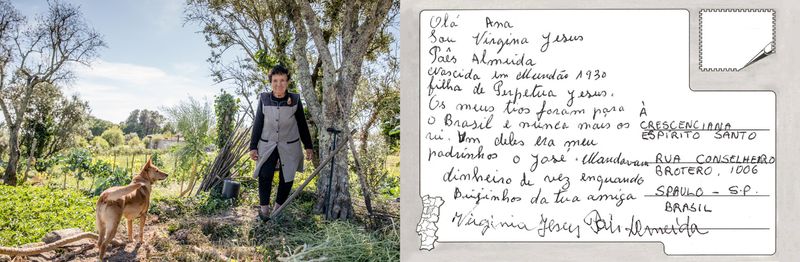 Olá Ana
Sou Virgina Jesus
Paês Almeida
Nascida em Mundão 1930
filha de Perpetua Jesus.
Os meus tios foram para
o Brasil e nunca mais os
vi. Um deles era meu
padrinhos o José. Mandavam
dinheiro de vez enquando
Beijinhos da tua amiga
Virginia Jesus Pais Almeida
À
CRESCENCIANA
ESPÍRITO SANTO
RUA CONSELHEIRO
BROTERO, 1006
SPAULO - S.P.
BRASIL